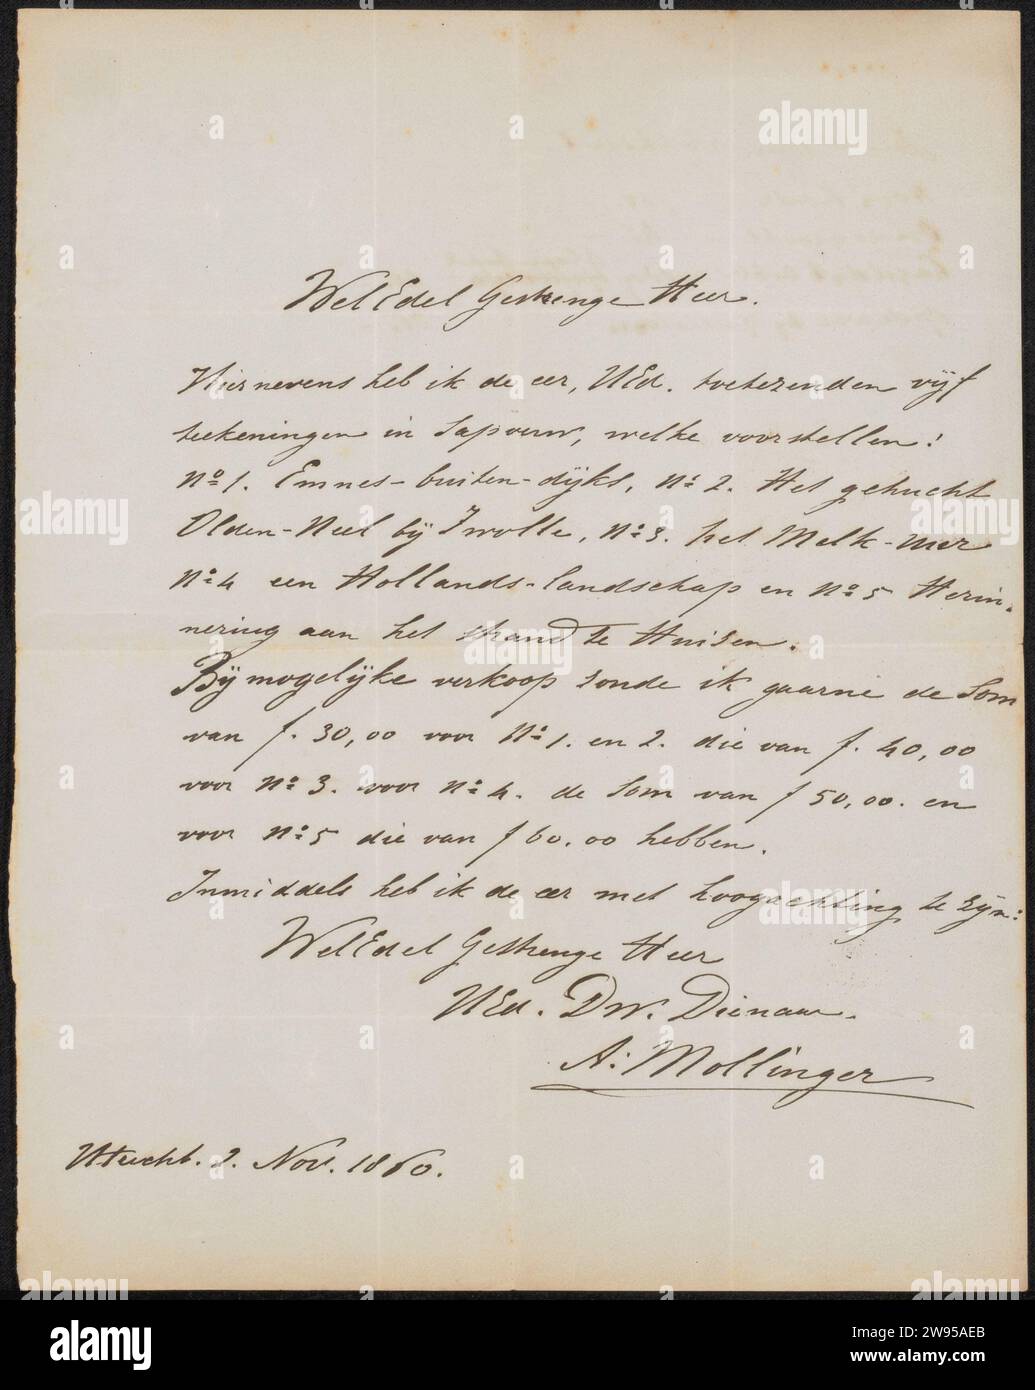 WelEdel Gestrenge Heer.
Hiernevens heb ik de eer, UEd. toetezenden vijf
teekeningen in Sapverw, welke voorstellen:
No 1. Emnes-buiten-dijks, No 2. Het gehucht
Olden-Neel bij Zwolle, No 3. het Melk-meer
No 4 een Hollands-landschap en No 5 Herin-
nering aan het strand te Huisen.
Bij mogelijke verkoop sonde ik gaarne de Som
van f. 30,00 voor No 1. en 2. die van f. 40,00
voor No 3. voor No 4. de Som van f 50,00. en
voor No 5 die van f 60.00 hebben.
Inmiddels heb ik de eer met hoogachting te zijn:
WelEdel Gestrenge Heer
UEd. Dw. Dienaar.
A: Mollinger
Utrecht. 2. Nov. 1860.
alamy
a
Image ID: 2W95AEB
www.alamy.com